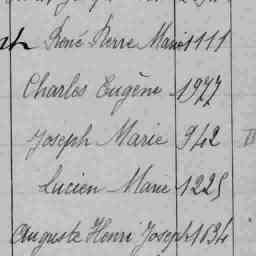 René Pierre Marie 1111
Charles Eugène 1977
Joseph Marie 942
Lucien Marie 1225
Auguste Henri Joseph 1634